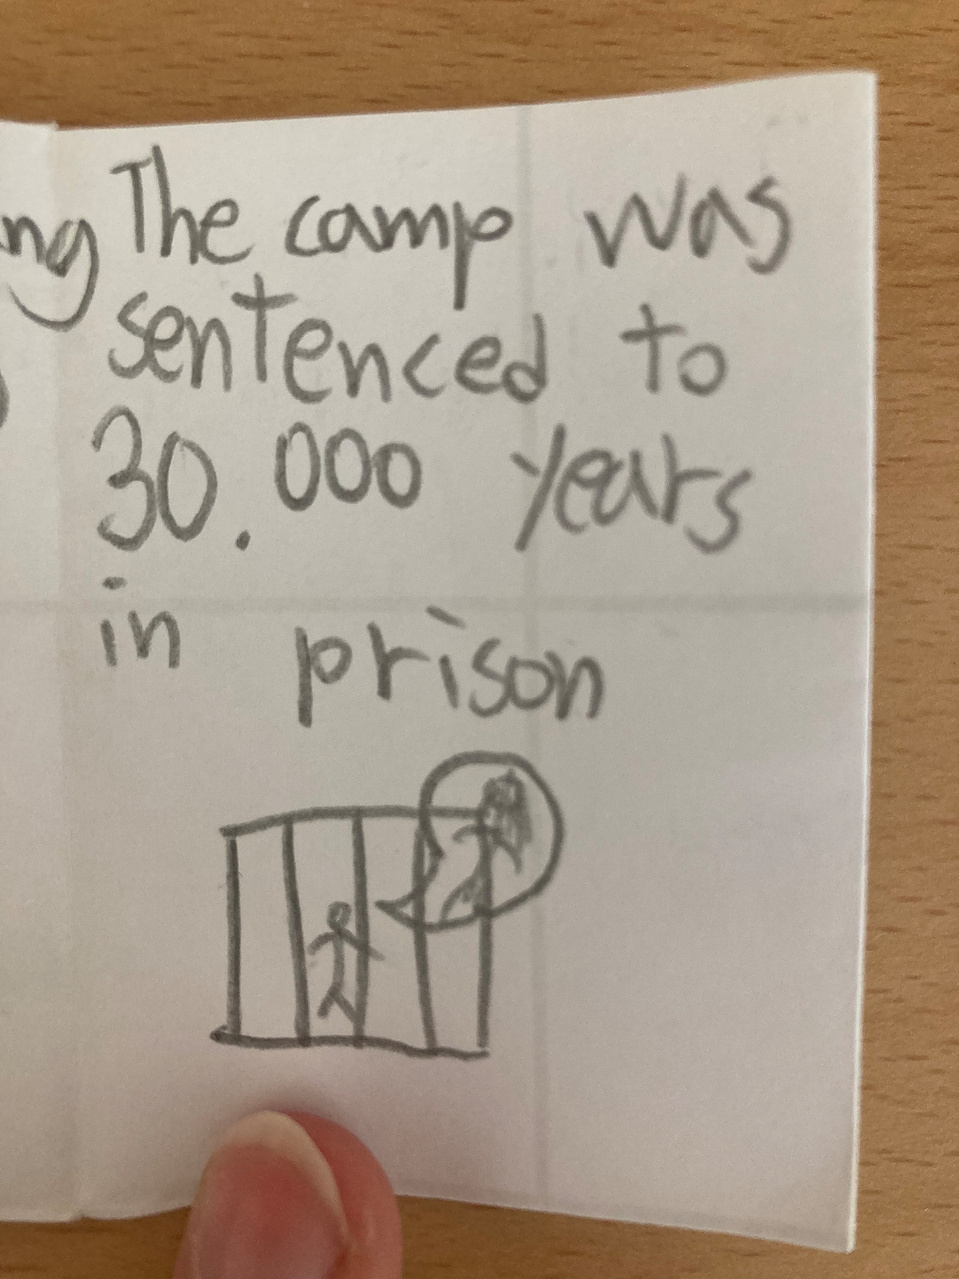 ng The camp was
sentenced to
30.000 years
in prison